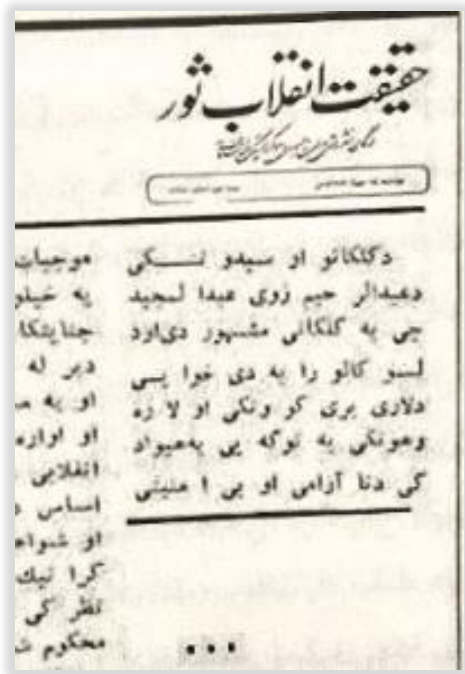 حقیقت انقلاب ثور
دکلکانو او سیدو نـــکی
دعبدالر حیم زوی عبدا لمجید
چی په کلکانی مشهور دی‌اود
لسو کالو را په دی خوا یسی
دلاری بری کو ونکی او لا ره
وهونکی په توکه یی په‌هیواد
کی دنا آرامی او بی ا منیتی
موجبات
په خپلو
جنایتکا
دیر له
او په
او اواره
انقلابی
اساس د
او شواه
کرا تیک
نظر کی
محکوم ش
...